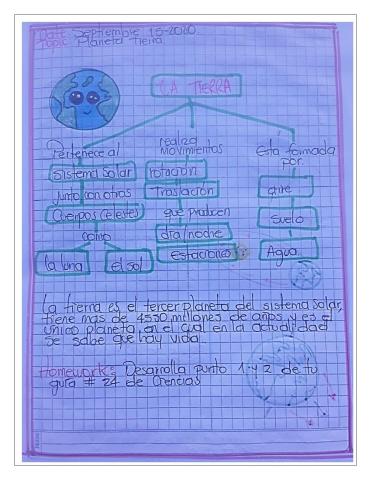 Date Septiembre 15-2020
Topic Planeta Tierra
LA TIERRA
Pertenece al
Sistema Solar
junto con otros
Cuerpos Celestes
como
la luna
el sol
realiza
Movimientos
rotacion
Traslacion
que producen
día/noche
estaciones
Esta formada
por.
aire
Suelo
Agua
La tierra es el tercer planeta del sistema Solar,
tiene mas de 4550 millones de años y es el
único planeta en el cual en la actualidad
Se sabe que hay vida.
Homework: Desarrolla punto 1 y 2 de tu
guía # 24 de Ciencias